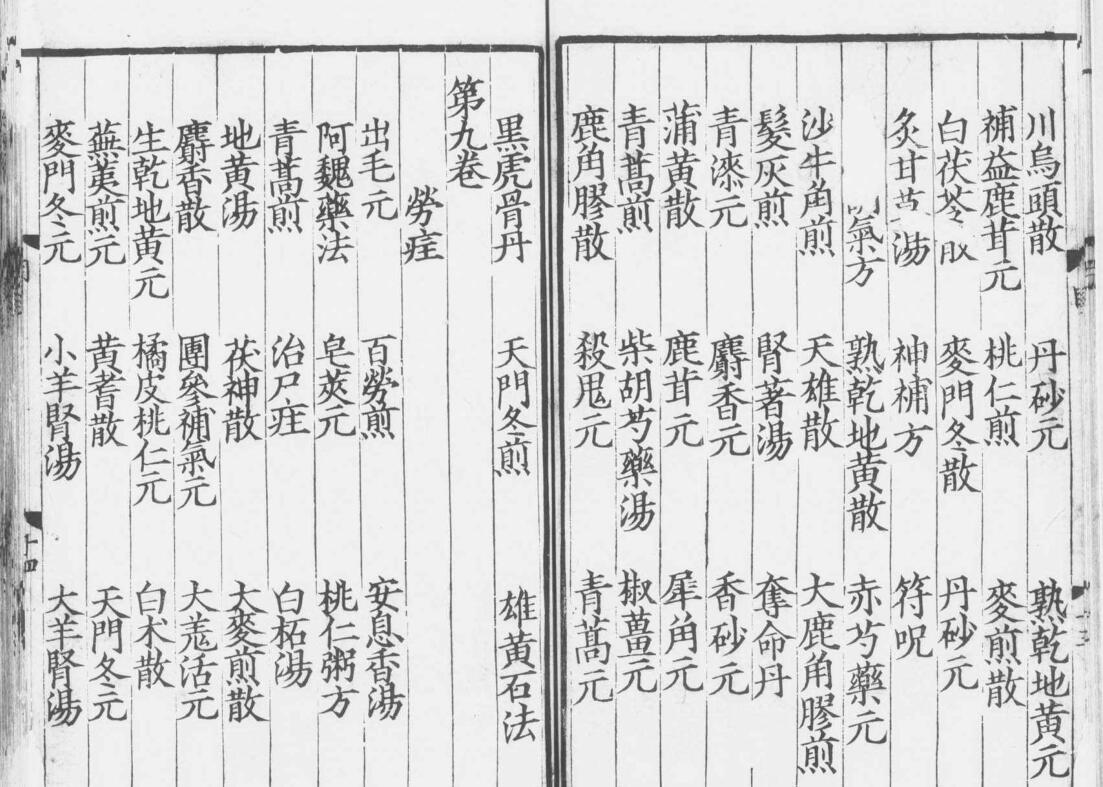 川烏頭散 丹砂元 熟乾地黃元
補益鹿茸元 桃仁煎 麥煎散
白茯苓 麥門冬散 丹砂元
炙甘 湯 神補方 符呪
氣方 熟乾地黃散 赤芍藥元
沙牛角煎 天雄散 大鹿角膠煎
髮灰煎 腎著湯 奪命丹
青漆元 麝香元 香砂元
蒲黃散 鹿茸元 犀角元
青蒿煎 柴胡芍藥湯 椒薑元
鹿角膠散 殺鬼元 青蒿元
黑虎骨丹 天門冬煎 雄黃石法
第九卷
勞疰
出毛元 百勞煎 安息香湯
阿魏藥法 皂莢元 桃仁粥方
青蒿煎 治尸疰 白柘湯
地黃湯 茯神散 大麥煎散
麝香散 團參補氣元 大羗活元
生乾地黃元 橘皮桃仁元 白术散
蕪荑煎元 黃耆散 天門冬元
麥門冬元 小羊腎湯 大羊腎湯
十四